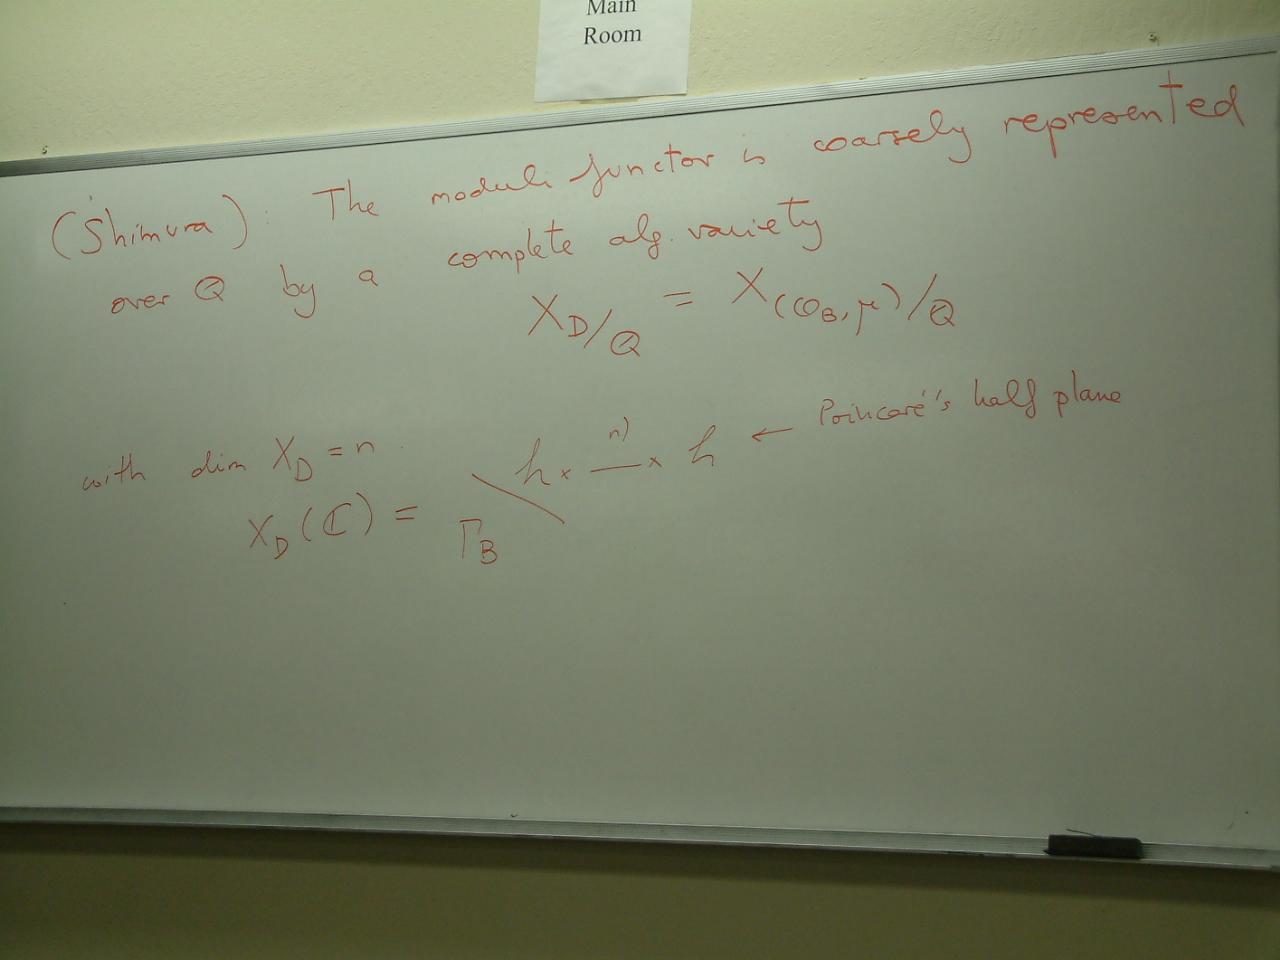 Main
Room
(Shimura): The moduli functor is coarsely represented
over Q by a complete alg. variety
X_D/Q = X_(O_B, μ)/Q
with dim X_D = n.
X_D(ℂ) = Γ_B \ h × —n)— × h ← Poincaré's half plane